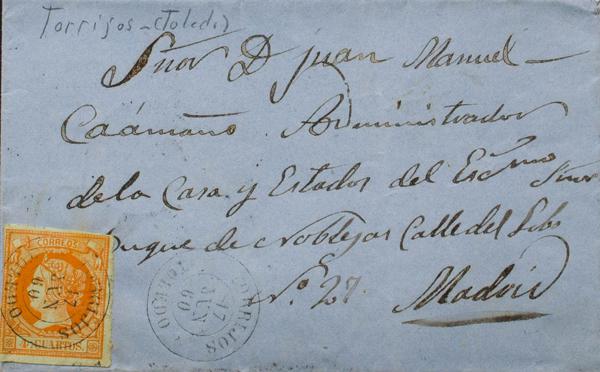 Torrijos - (Toledo)
Señor D Juan Manuel
Caámaño Administrador
de la Casa y Estados del Escmo Señor
Duque de Noblejas Calle del Lobo
Nº 27. Madrid
CORREOS
4 CUARTOS.
TORRIJOS
17
JUN
60
TOLEDO
TORRIJOS
17
JUN
60
TOLEDO